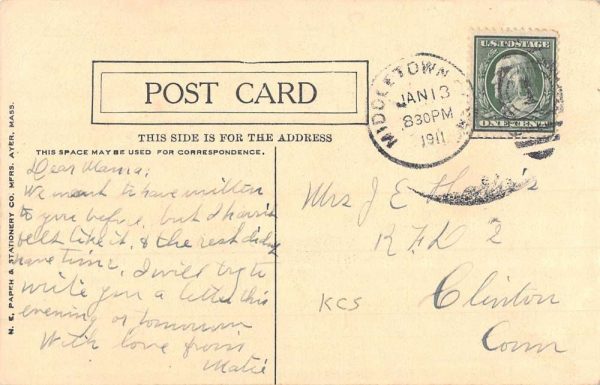 POST CARD
THIS SIDE IS FOR THE ADDRESS
THIS SPACE MAY BE USED FOR CORRESPONDENCE.
N. E. PAPER & STATIONERY CO. MFRS. AYER, MASS.
Dear Mama;
We meant to have written
to you before, but I haven't
felt like it, & the rest didn't
have time. I will try to
write you a letter this
evening or tomorrow
With love from
Matie
MIDDLETOWN
JAN 13
830PM
1911
U.S. POSTAGE
ONE CENT
Mrs J E Harris
R F D 2
Clinton
Conn
KCS